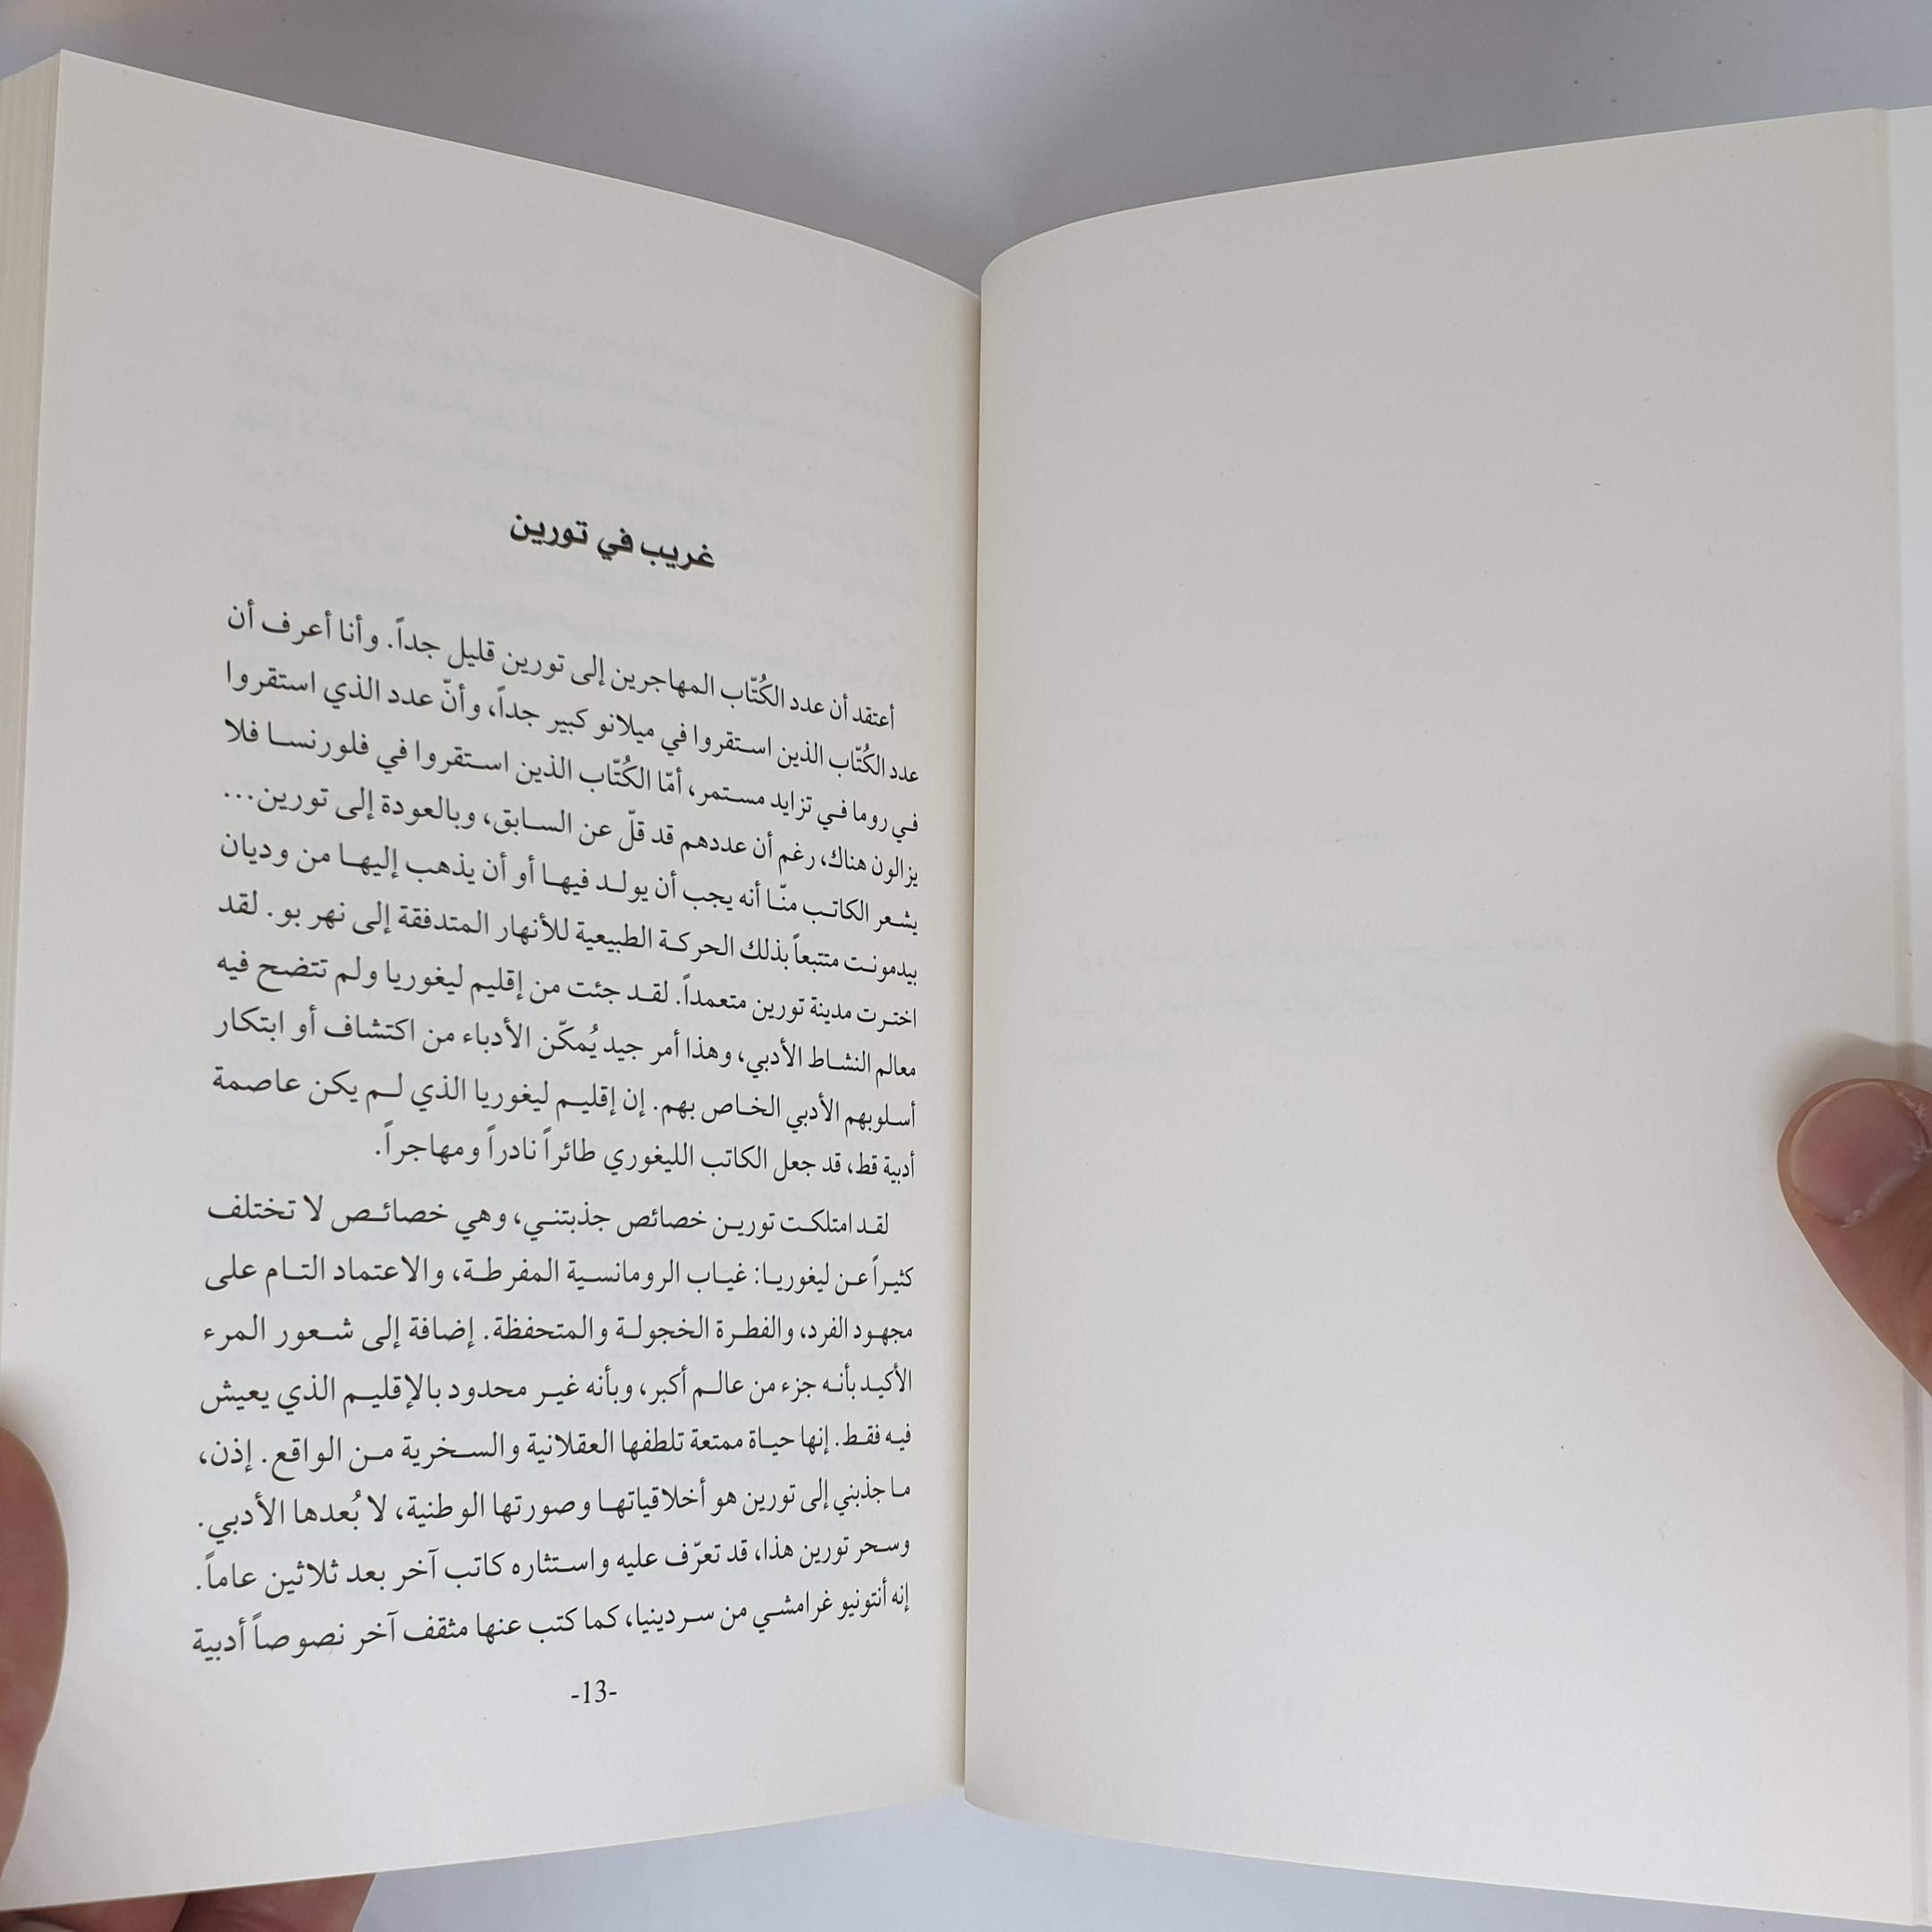 غريب في تورين
أعتقد أن عدد الكُتّاب المهاجرين إلى تورين قليل جداً. وأنا أعرف أن
عدد الكُتّاب الذين استقروا في ميلانو كبير جداً، وأنّ عدد الذي استقروا
في روما في تزايد مستمر، أمّا الكُتّاب الذين استقروا في فلورنسا فلا
يزالون هناك، رغم أن عددهم قد قلّ عن السابق، وبالعودة إلى تورين...
يشعر الكاتب منّا أنه يجب أن يولد فيها أو أن يذهب إليها من وديان
بيدمونت متتبعاً بذلك الحركة الطبيعية للأنهار المتدفقة إلى نهر بو. لقد
اخترت مدينة تورين متعمداً. لقد جئت من إقليم ليغوريا ولم تتضح فيه
معالم النشاط الأدبي، وهذا أمر جيد يُمكّن الأدباء من اكتشاف أو ابتكار
أسلوبهم الأدبي الخاص بهم. إن إقليم ليغوريا الذي لم يكن عاصمة
أدبية قط، قد جعل الكاتب الليغوري طائراً نادراً ومهاجراً.
لقد امتلكت تورين خصائص جذبتني، وهي خصائص لا تختلف
كثيراً عن ليغوريا: غياب الرومانسية المفرطة، والاعتماد التام على
مجهود الفرد، والفطرة الخجولة والمتحفظة. إضافة إلى شعور المرء
الأكيد بأنه جزء من عالم أكبر، وبأنه غير محدود بالإقليم الذي يعيش
فيه فقط. إنها حياة ممتعة تلطفها العقلانية والسخرية من الواقع. إذن،
ما جذبني إلى تورين هو أخلاقياتها وصورتها الوطنية، لا بُعدها الأدبي.
وسحر تورين هذا، قد تعرّف عليه واستثاره كاتب آخر بعد ثلاثين عاماً.
إنه أنتونيو غرامشي من سردينيا، كما كتب عنها مثقف آخر نصوصاً أدبية
-13-